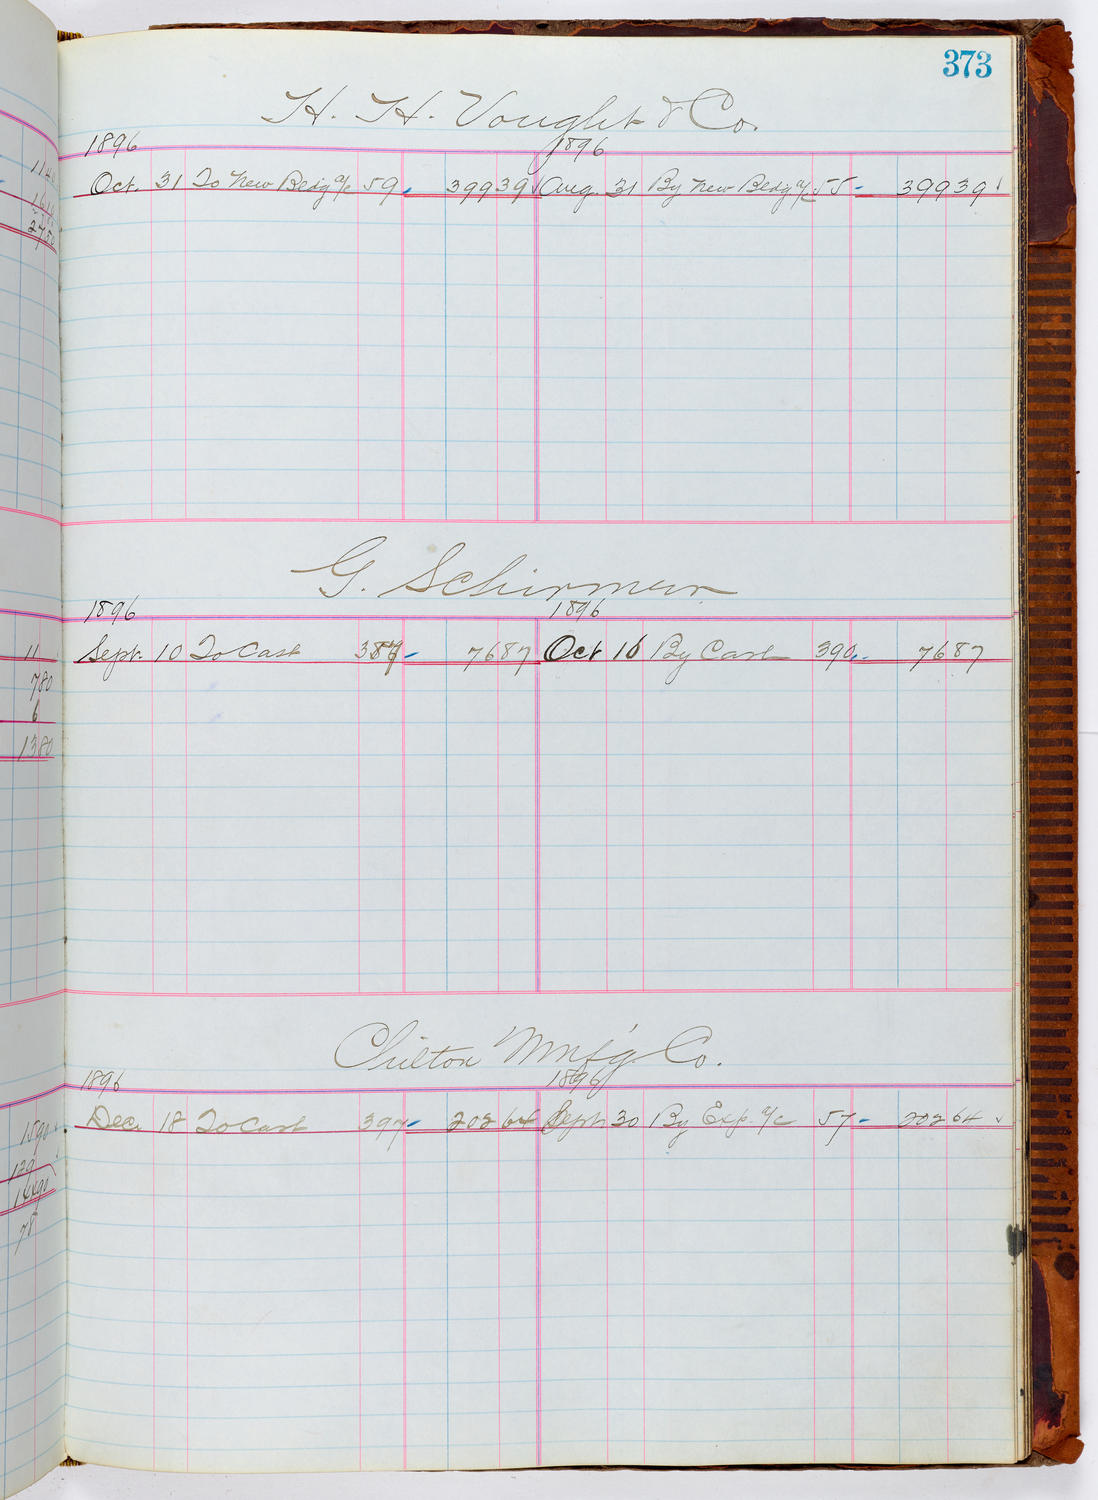 373
H. H. Vought & Co.
1896 1896
Oct. 31 To New Bldg a/c 59 399 39 Aug. 31 By New Bldg a/c 55 399 39
G. Schirmer
1896 1896
Sept. 10 To Cash 387 76 87 Oct 10 By Cash 390 76 87
780
6
1380
Chilton Mnf'g Co.
1896 1896
Dec. 18 To Cash 397 202 64 Sept 30 By Exp. a/c 57 202 64
1590
120
78